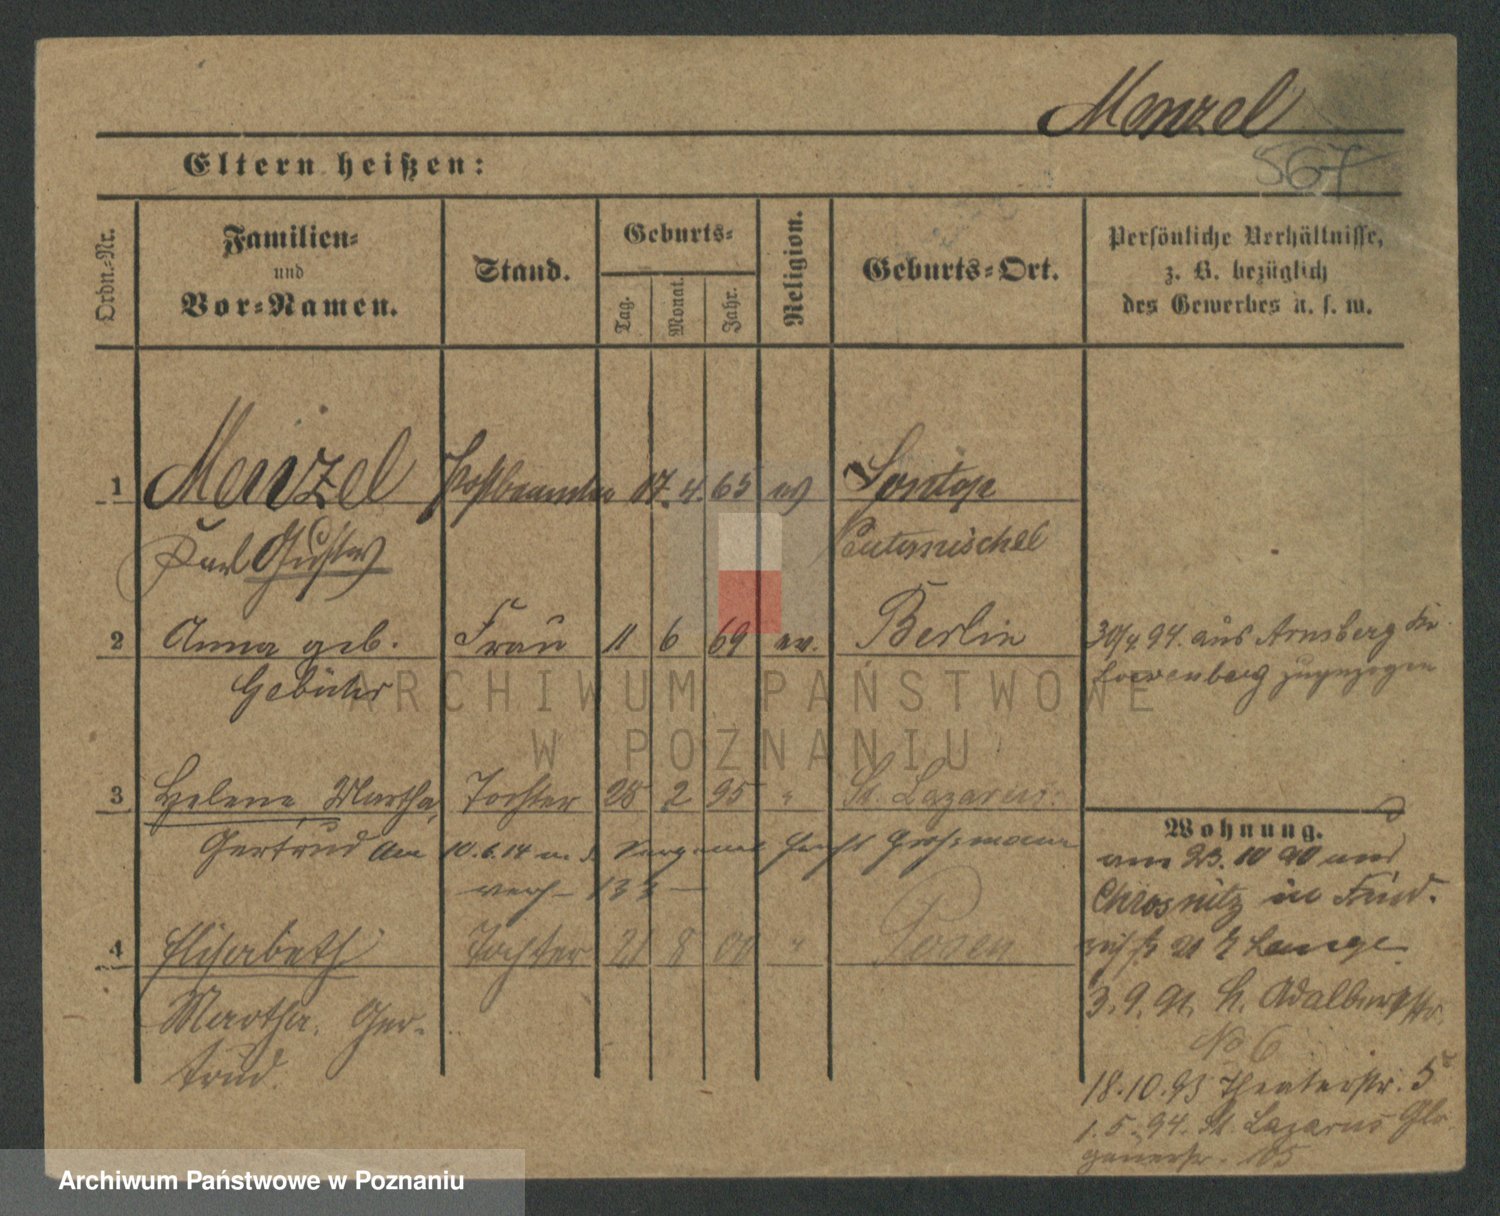 Menzel
567
Eltern heißen:
Ordn.-Nr.
Familien-
und
Vor-Namen.
Stand.
Geburts-
Tag.
Monat.
Jahr.
Religion.
Geburts-Ort.
Persönliche Verhältnisse,
z. B. bezüglich
des Gewerbes u. s. w.
1 Menzel Postbeamter 17. 4. 65 ev Sontop
Karl Gustav Neutomischel
2 Anna geb. Frau 11 6 69 ev. Berlin 30/4 94. aus Arnsberg Kr.
Gebühr Loewenberg zugezogen
3 Helene, Martha, Tochter 28 2 95 " St. Lazarus.
Gertrud am 10.6.14 m. d.
4 Elisabeth Tochter 21 8 00 " Posen
Martha. Ger-
trud.
Wohnung.
am 23. 10 90 aus
in Fried-
3.9.91. Adalbertstr.
No 6
18.10.93 Theaterstr. 5
1.5.94. St. Lazarus Glo-
gauerstr. 105
ARCHIWUM PAŃSTWOWE
W POZNANIU
Archiwum Państwowe w Poznaniu